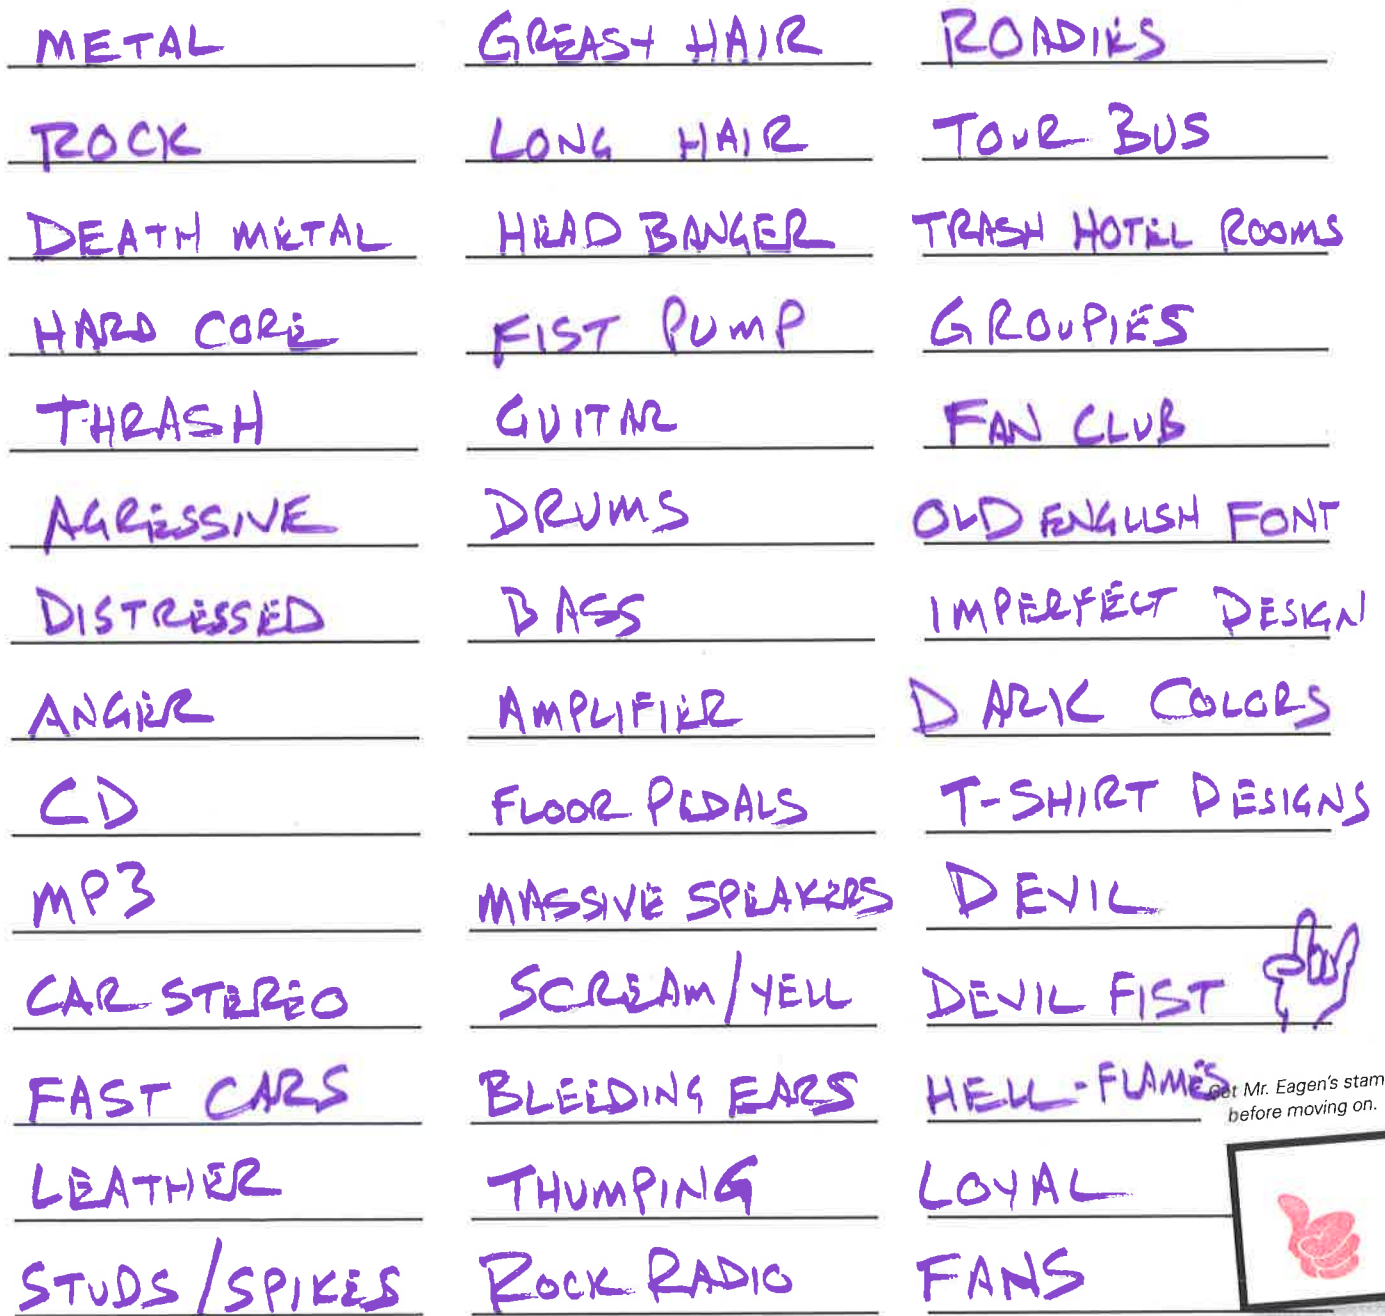 METAL
ROCK
DEATH METAL
HARD CORE
THRASH
AGRESSIVE
DISTRESSED
ANGER
CD
MP3
CAR STEREO
FAST CARS
LEATHER
STUDS/SPIKES
GREASY HAIR
LONG HAIR
HEAD BANGER
FIST PUMP
GUITAR
DRUMS
BASS
AMPLIFIER
FLOOR PEDALS
MASSIVE SPEAKERS
SCREAM/YELL
BLEEDING EARS
THUMPING
ROCK RADIO
ROADIES
TOUR BUS
TRASH HOTEL ROOMS
GROUPIES
FAN CLUB
OLD ENGLISH FONT
IMPERFECT DESIGN
DARK COLORS
T-SHIRT DESIGNS
DEVIL
DEVIL FIST
HELL-FLAMES
LOYAL
FANS
Get Mr. Eagen's stam
before moving on.